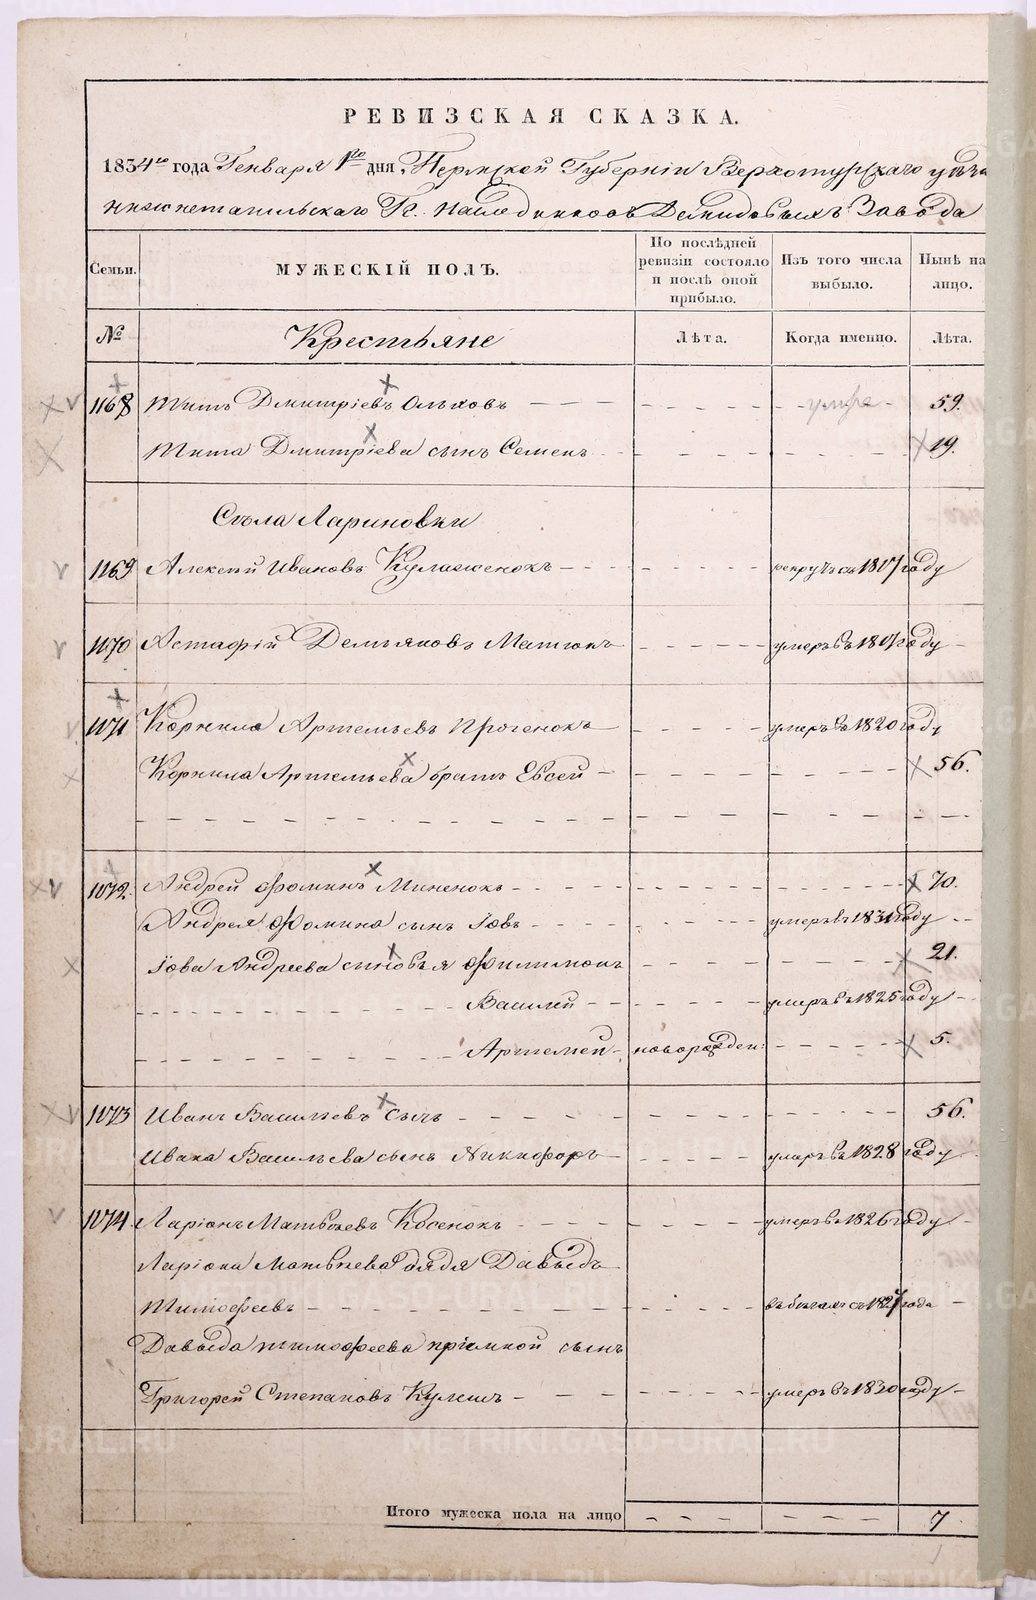 РЕВИЗСКАЯ СКАЗКА.
1834го года Генваря 1го дня, Пермской Губернiи Верхотурскаго уѣзда
нижнетагильскаго Гг. наследниковъ Демидовыхъ Завода
Семьи. МУЖЕСКIЙ ПОЛЪ. По послѣдней ревизiи состояло и послѣ оной прибыло. Изъ того числа выбыло. Нынѣ на лицо.
№ Крестьяне Лѣта. Когда именно. Лѣта.
1168 Титъ Дмитрiевъ Ольховъ умре 59.
Тита Дмитрiева сынъ Семенъ 19.
Села Лариновки
1169 Алексей Ивановъ Кулаженокъ рекрутъ съ 1807 году
1170 Астафiй Демьяновъ Матюкъ умеръ въ году
1171 Корнила Артемьевъ Проченокъ умеръ въ 1820 году
Корнила Артемьева братъ Евсей 56.
1072. Андрей Фоминъ Миненокъ 70.
Андрея Фомина сынъ Iовъ умеръ въ 1831 году
Iова Андреева сыновья Филимонъ 21.
Василей умеръ въ 1825 году
Артемей новорожден: 5.
1073 Иванъ Васильевъ Сычъ 56.
Ивана Васильева сынъ Никифоръ умеръ въ 1828 году
1074. Ларiонъ Матвѣевъ Косенокъ умеръ въ 1826 году
Ларiона Матвѣева дядя Давыдъ
Тимофеевъ въ бегахъ съ 1827 года
Давыда Тимофеева прiемной сынъ
Григорей Степановъ умеръ въ 1830 году
Итого мужеска пола на лицо 7
METRIKI.GASO-URAL.RU